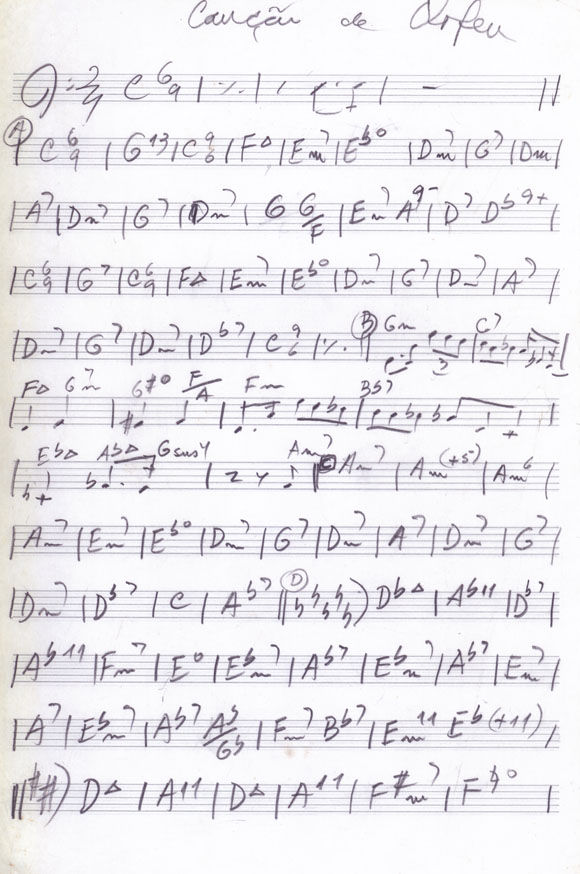 Canção de Orfeu
2/4 C 6/9 | ٪ | ٪ | –
A | C 6/9 | G13 | C 9/6 | F△ | Em7 | Eb° | Dm7 | G7 | Dm |
| A7 | Dm7 | G7 | Dm7 | G G/F | Em7 A9- | D7 Db9+ |
| C 6/9 | G7 | C 6/9 | F△ | Em7 | Eb° | Dm7 | G7 | Dm7 | A7 |
| Dm7 | G7 | Dm7 | Db7 | C 9/6 | ٪ || B Gm C7
F△ Gm7 G#° F/A Fm Bb7
Eb△ Ab△ Gsus4 Am7 C Am7 | Am(+5) | Am6 |
| Am7 | Em7 | Eb° | Dm7 | G7 | Dm7 | A7 | Dm7 | G7 |
| Dm7 | Db7 | C | Ab7 || D bbbbb) Db△ | Ab11 | Db7 |
| Ab11 | Fm7 | E° | Ebm7 | Ab7 | Ebm7 | Ab7 | Em7 |
| A7 | Ebm7 | Ab7 Ab/Gb | Fm7 Bb7 | Em11 Eb(+11) |
|| ##) D△ | A11 | D△ | A11 | F#m7 | F♮° |